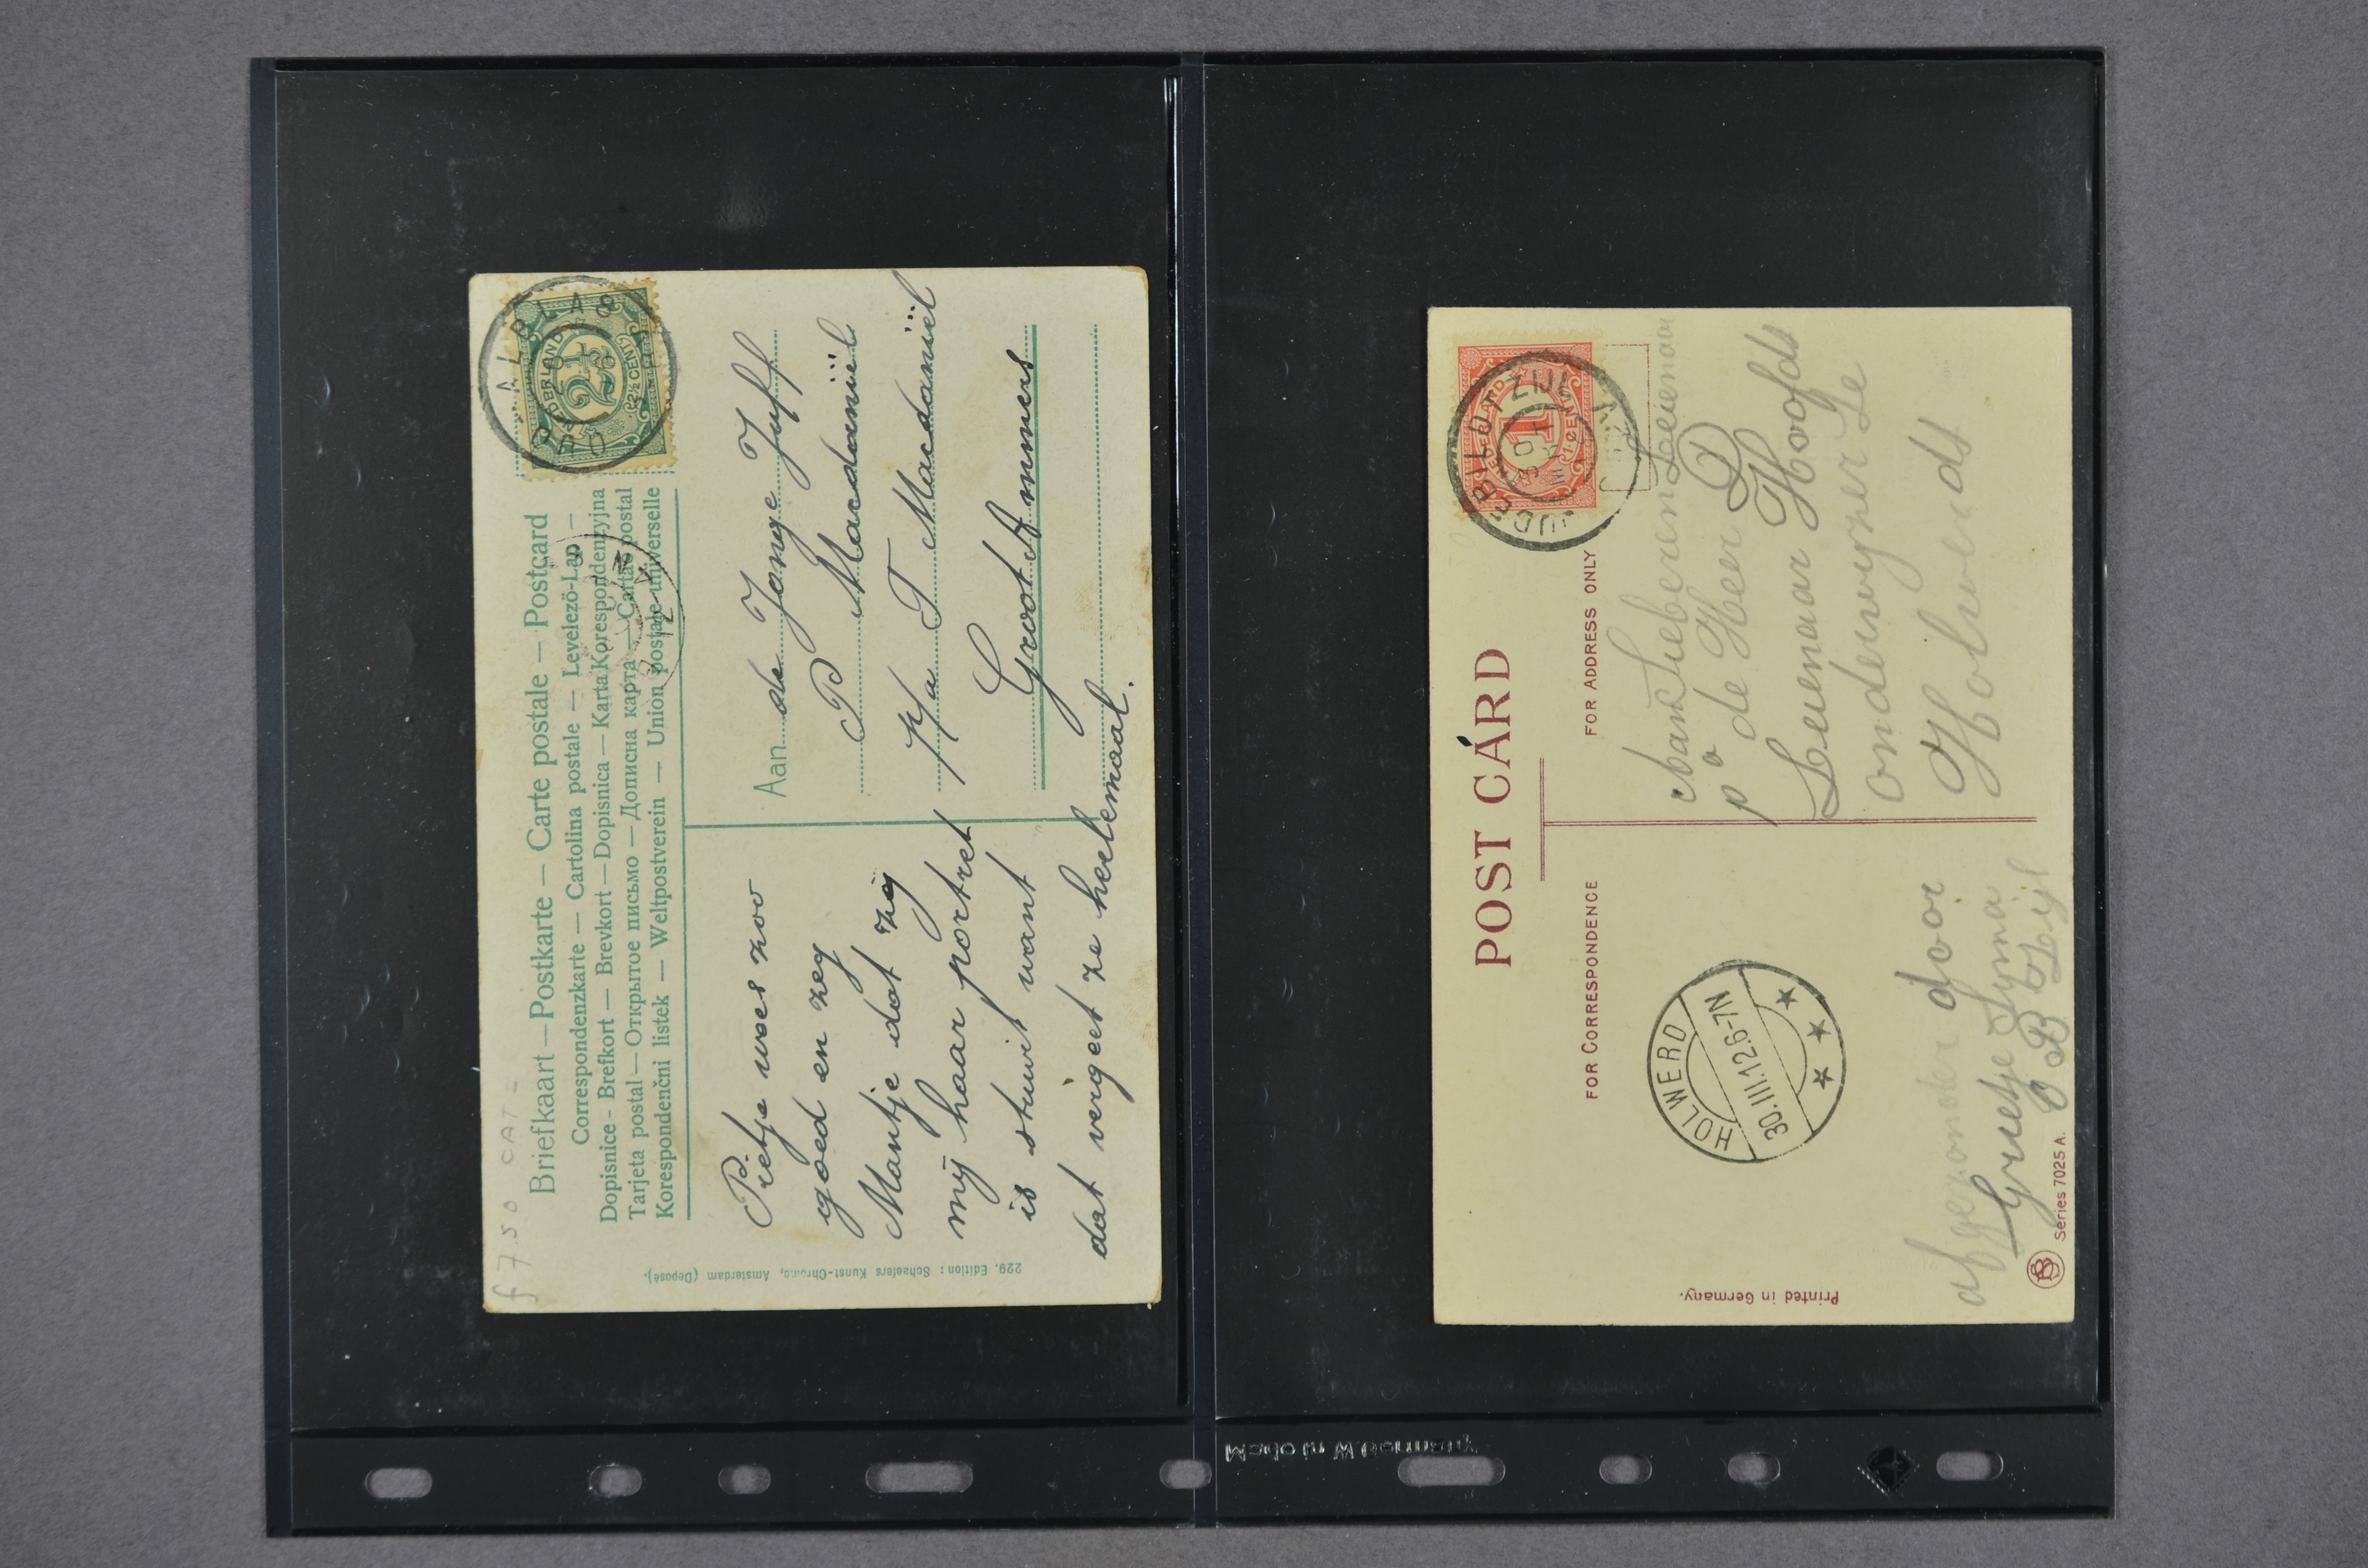 f 7.50 CAT =
Briefkaart — Postkarte — Carte postale — Postcard
Correspondenzkarte — Cartolina postale — Levelező-Lap —
Dopisnice - Brefkort — Brevkort — Dopisnica — Karta Korespondenzyjna
Tarjeta postal — Открытое письмо — Дописна карта — Cartão postal
Korespondenčni listek — Weltpostverein — Union postale universelle
NEDERLAND
2½
2½ CENT
Pietje wees zoo
goed en zeg
Mantje dat zij
mij haar portret
is stuurt want
dat vergeet ze heelemaal.
Aan de Jonge Juff
P Macdaniël
p/a T Macdaniël
Groot Ammers
229. Edition: Schaefers Kunst-Chromo, Amsterdam (Deposé).
POST CARD
FOR CORRESPONDENCE
FOR ADDRESS ONLY
NEDERLAND
1
1 CENT
OUDEBILDTZIJL
HOLWERD
30.III.12.6-7N
de Heer D
Leienaar Hoofds
onderwyzer te
Holwerds
afgezonden door
Grietje Syma
O B Zijl
Series 7025 A.
Printed in Germany.
Made in W. Germany